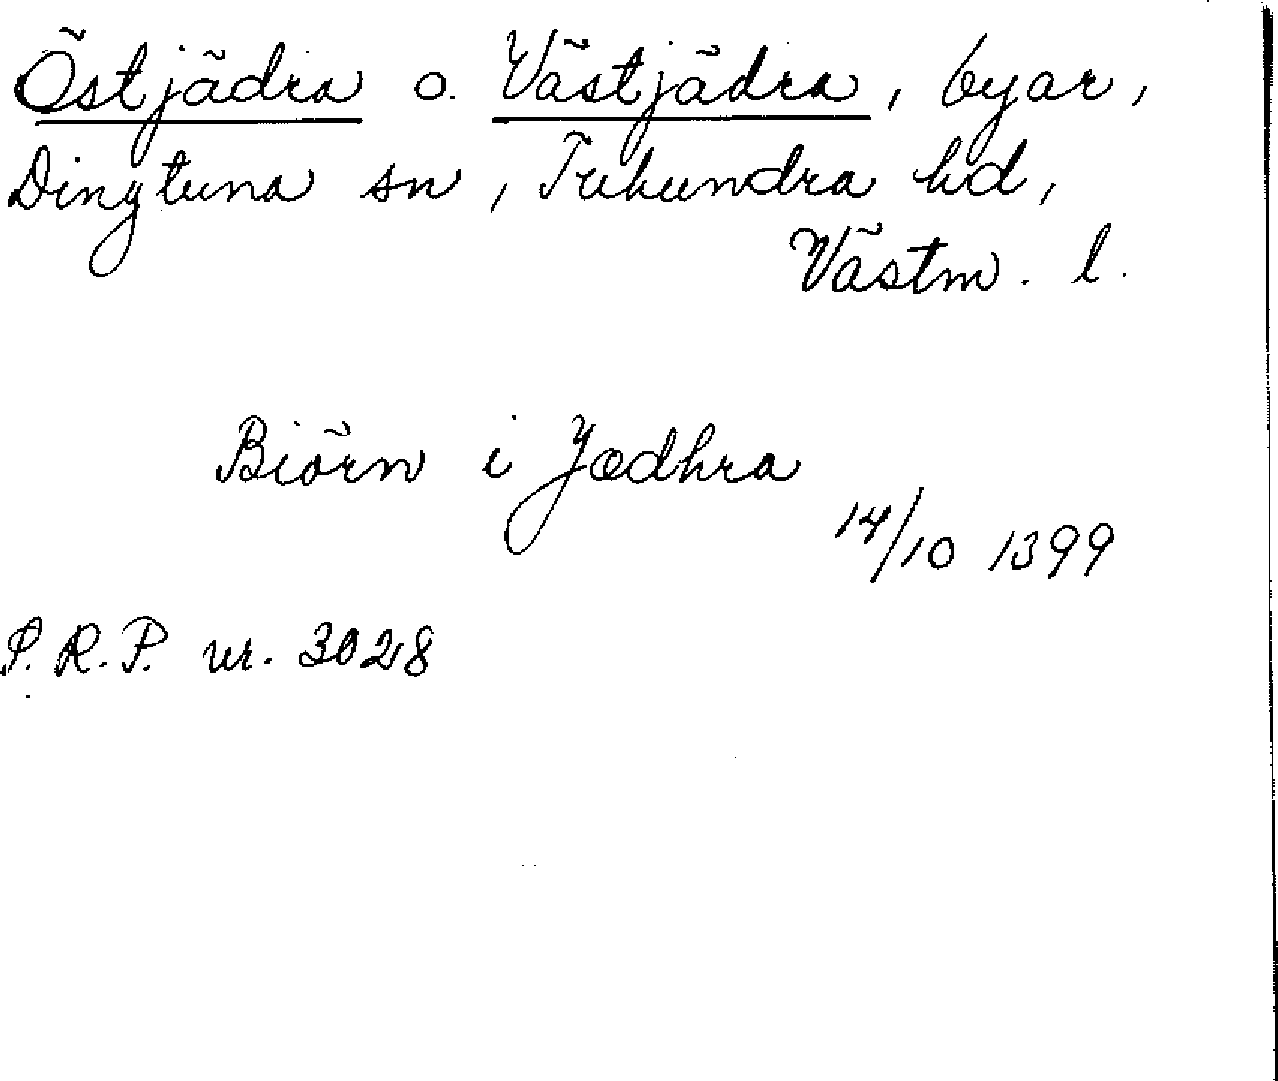 Östjädra o. Västjädra, byar,
Dingtuna sn, Tuhundra hd,
Västm. l.
Biörn i Jædhra
14/10 1399
S.R.P. nr. 3028